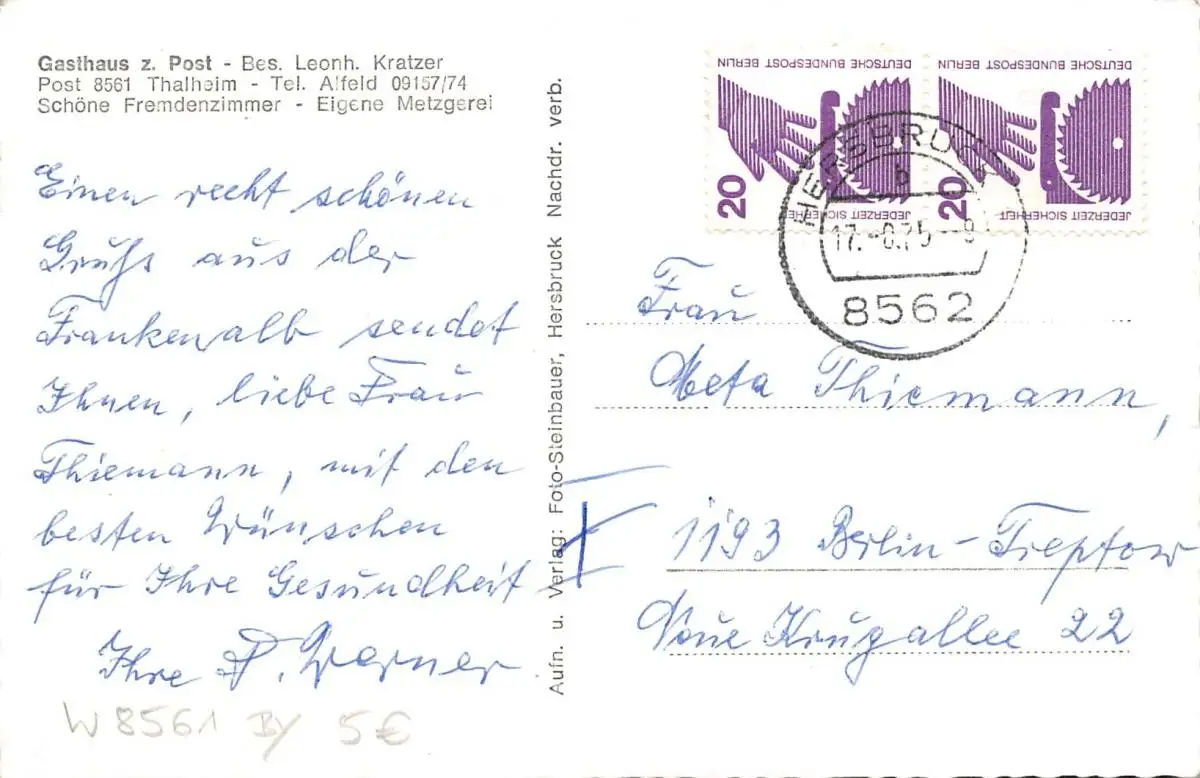 Gasthaus z. Post - Bes. Leonh. Kratzer
Post 8561 Thalheim - Tel. Alfeld 09157/74
Schöne Fremdenzimmer - Eigene Metzgerei
Einen recht schönen
Gruß aus der
Frankenalb sendet
Ihnen, liebe Frau
Thiemann, mit den
besten Wünschen
für Ihre Gesundheit
Ihre Werner
W 8561 By 5€
Aufn. u. Verlag: Foto-Steinbauer, Hersbruck Nachdr. verb.
DEUTSCHE BUNDESPOST BERLIN
20
JEDERZEIT SICHERHEIT
DEUTSCHE BUNDESPOST BERLIN
20
JEDERZEIT SICHERHEIT
HERSBRUCK
b
8562
Frau
Meta Thiemann,
F
1193 Berlin-Treptow
Neue Krugallee 22